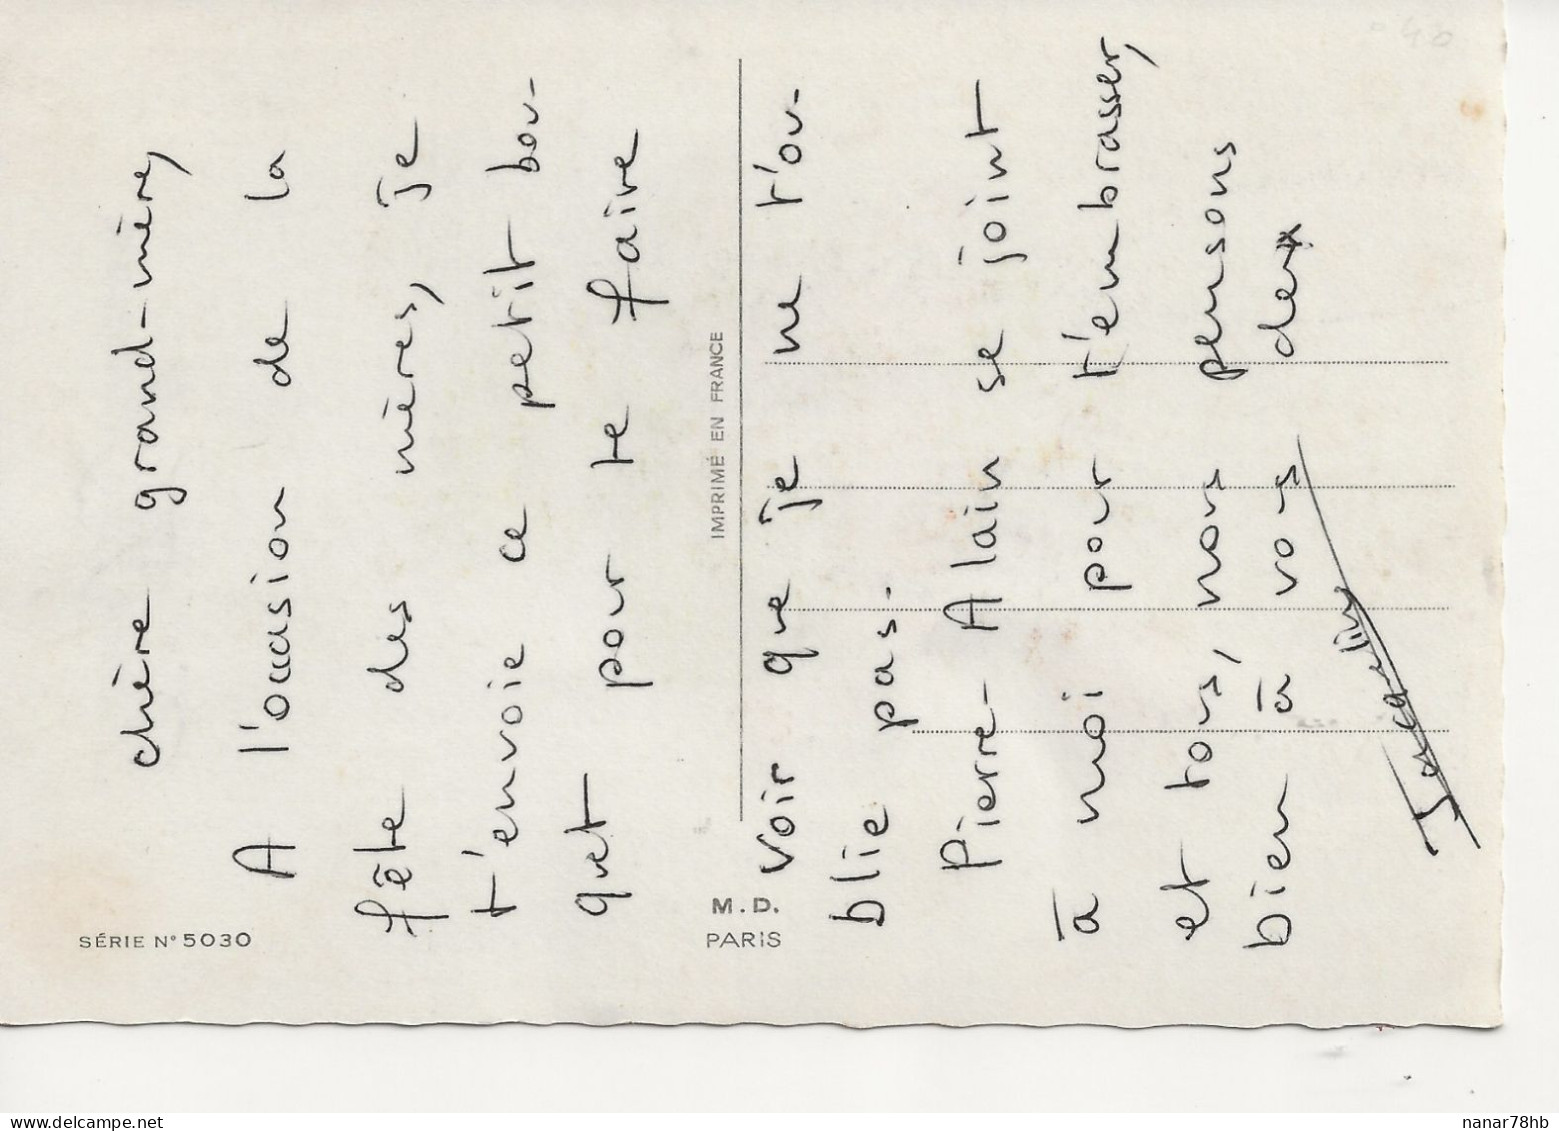 chère grand-mère,
A l'occasion de la
fête des mères, je
t'envoie ce petit bou-
quet pour te faire
voir que je ne t'ou-
blie pas.
Pierre-Alain se joint
à moi pour t'embrasser,
et tous, nous pensons
bien à vous deux
Jacqueline
SÉRIE N° 5030
M.D.
PARIS
IMPRIMÉ EN FRANCE
40
nanar78hb